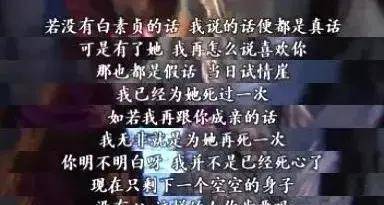 若没有白素贞的话 我说的话便都是真话
可是有了她 我再怎么说喜欢你
那也都是假话 当日试情崖
我已经为她死过一次
如若我再跟你成亲的话
我无非就是为她再死一次
你明不明白呀 我并不是已经死心了
现在只剩下一个空空的身子